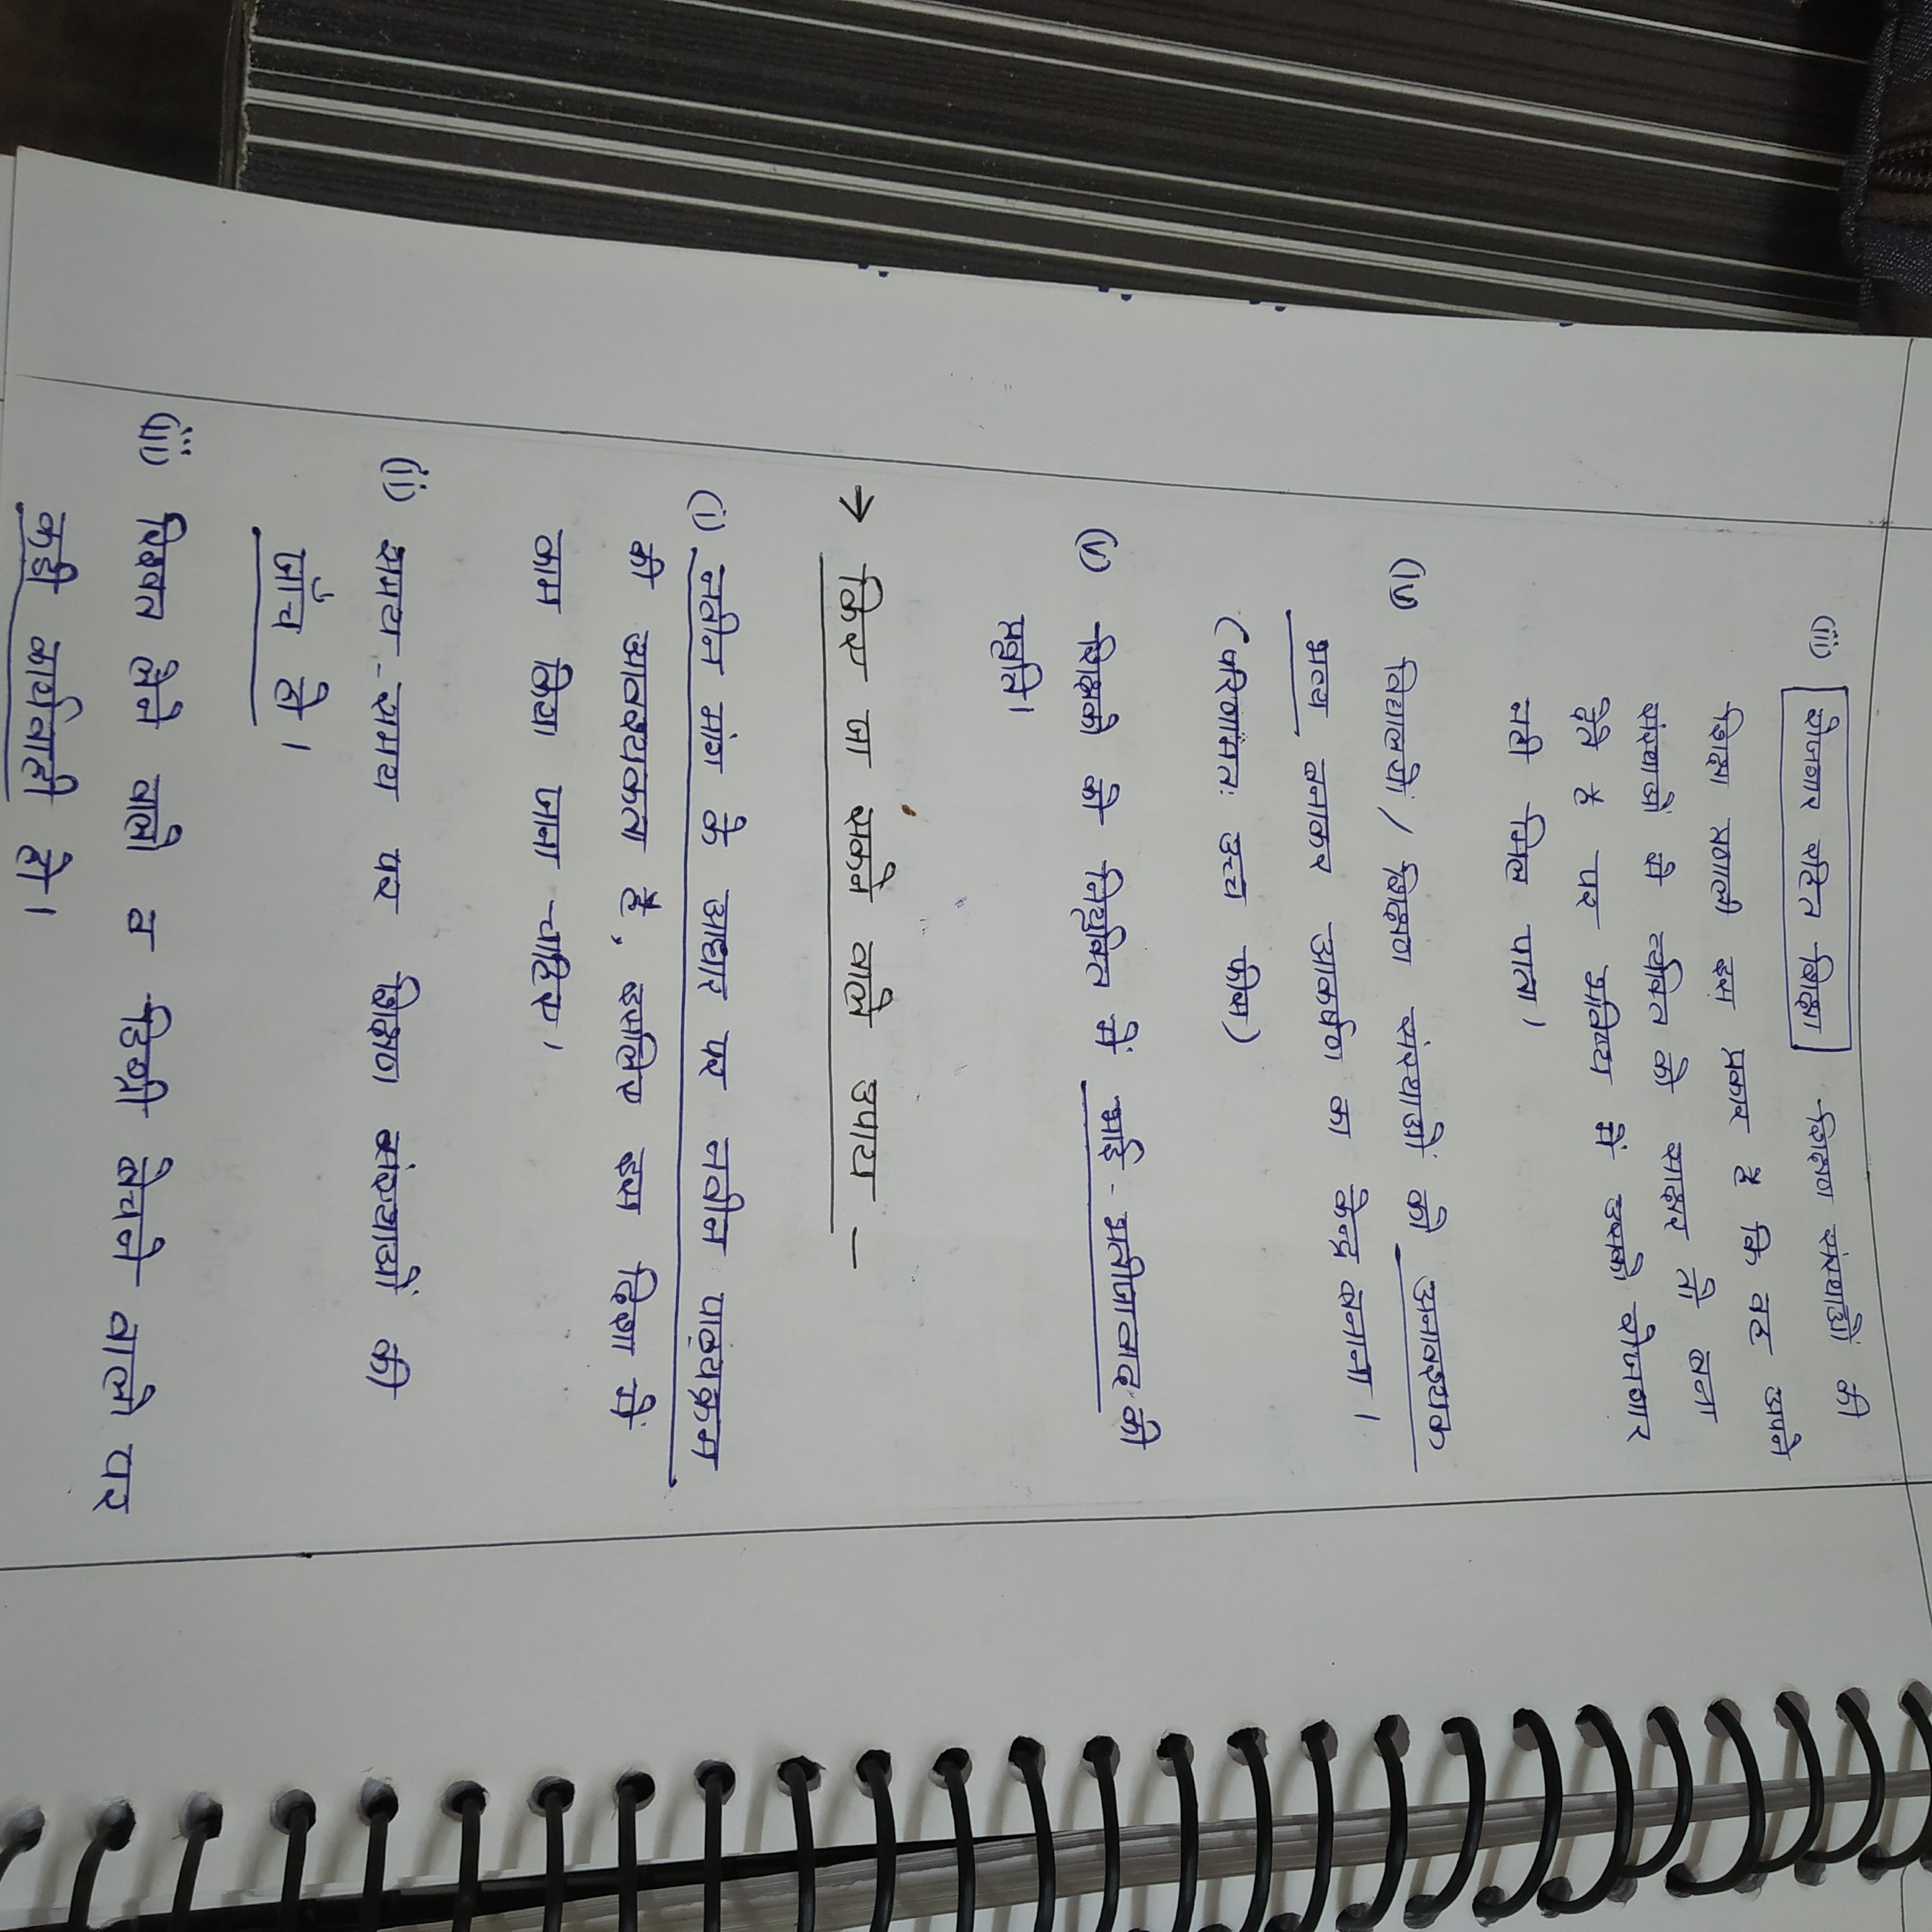 (iii) रोजगार रहित शिक्षा - शिक्षण संस्थाओं की
शिक्षा प्रणाली इस प्रकार है कि वह अपने
संस्थाओं से व्यक्ति को साक्षर तो बना
देते है पर भविष्य में उसको रोजगार
नही मिल पाता।
(iv) विद्यालयों / शिक्षण संस्थाओं को अनावश्यक
भव्य बनाकर आकर्षण का केन्द्र बनाना।
(परिणामतः उच्च फीस)
(v) शिक्षको की नियुक्ति में भाई-भतीजावाद की
प्रवृति।
→ किए जा सकने वाले उपाय –
(i) नवीन मांग के आधार पर नवीन पाठ्यक्रम
की आवश्यकता है, इसलिए इस दिशा में
काम किया जाना चाहिए।
(ii) समय-समय पर शिक्षण संस्थाओं की
जाँच हो।
(iii) रिश्वत लेने वालो व डिग्री बेचने वालो पर
कड़ी कार्यवाही हो।